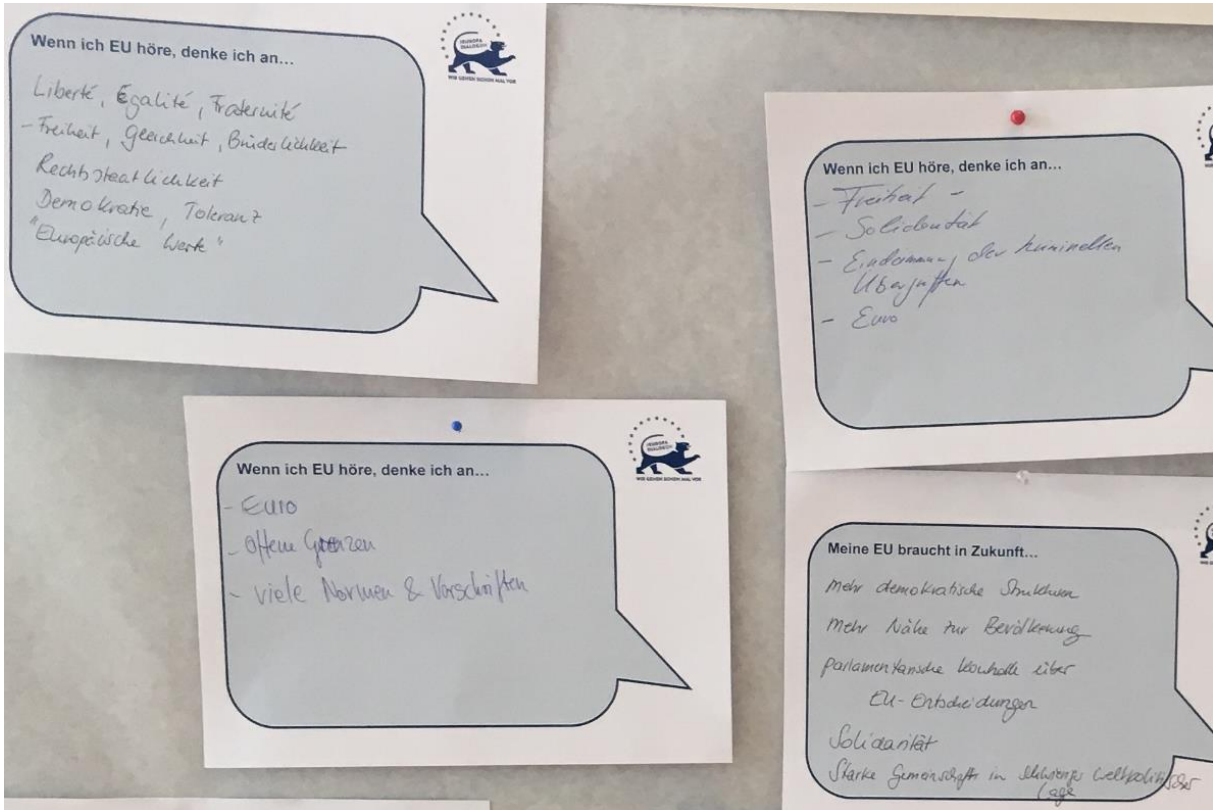 Wenn ich EU höre, denke ich an...
Liberté, Égalité, Fraternité
- Freiheit, Gleichheit, Brüderlichkeit
Rechtsstaatlichkeit
Demokratie, Toleranz
"Europäische Werte"
!EUROPA
DIALOG!CH
WIR GEHEN SCHON MAL VOR
Wenn ich EU höre, denke ich an...
- Freiheit -
- Solidarität
- Eindämmung der kriminellen
- Euro
Wenn ich EU höre, denke ich an...
- Euro
- offene Grenzen
- viele Normen & Vorschriften
!EUROPA
DIALOG!CH
WIR GEHEN SCHON MAL VOR
Meine EU braucht in Zukunft...
mehr demokratische Strukturen
mehr Nähe zur Bevölkerung
parlamentarische Kontrolle über
EU-Entscheidungen
Solidarität
Starke Gemeinschaft in schwieriger weltpolitischer
Lage